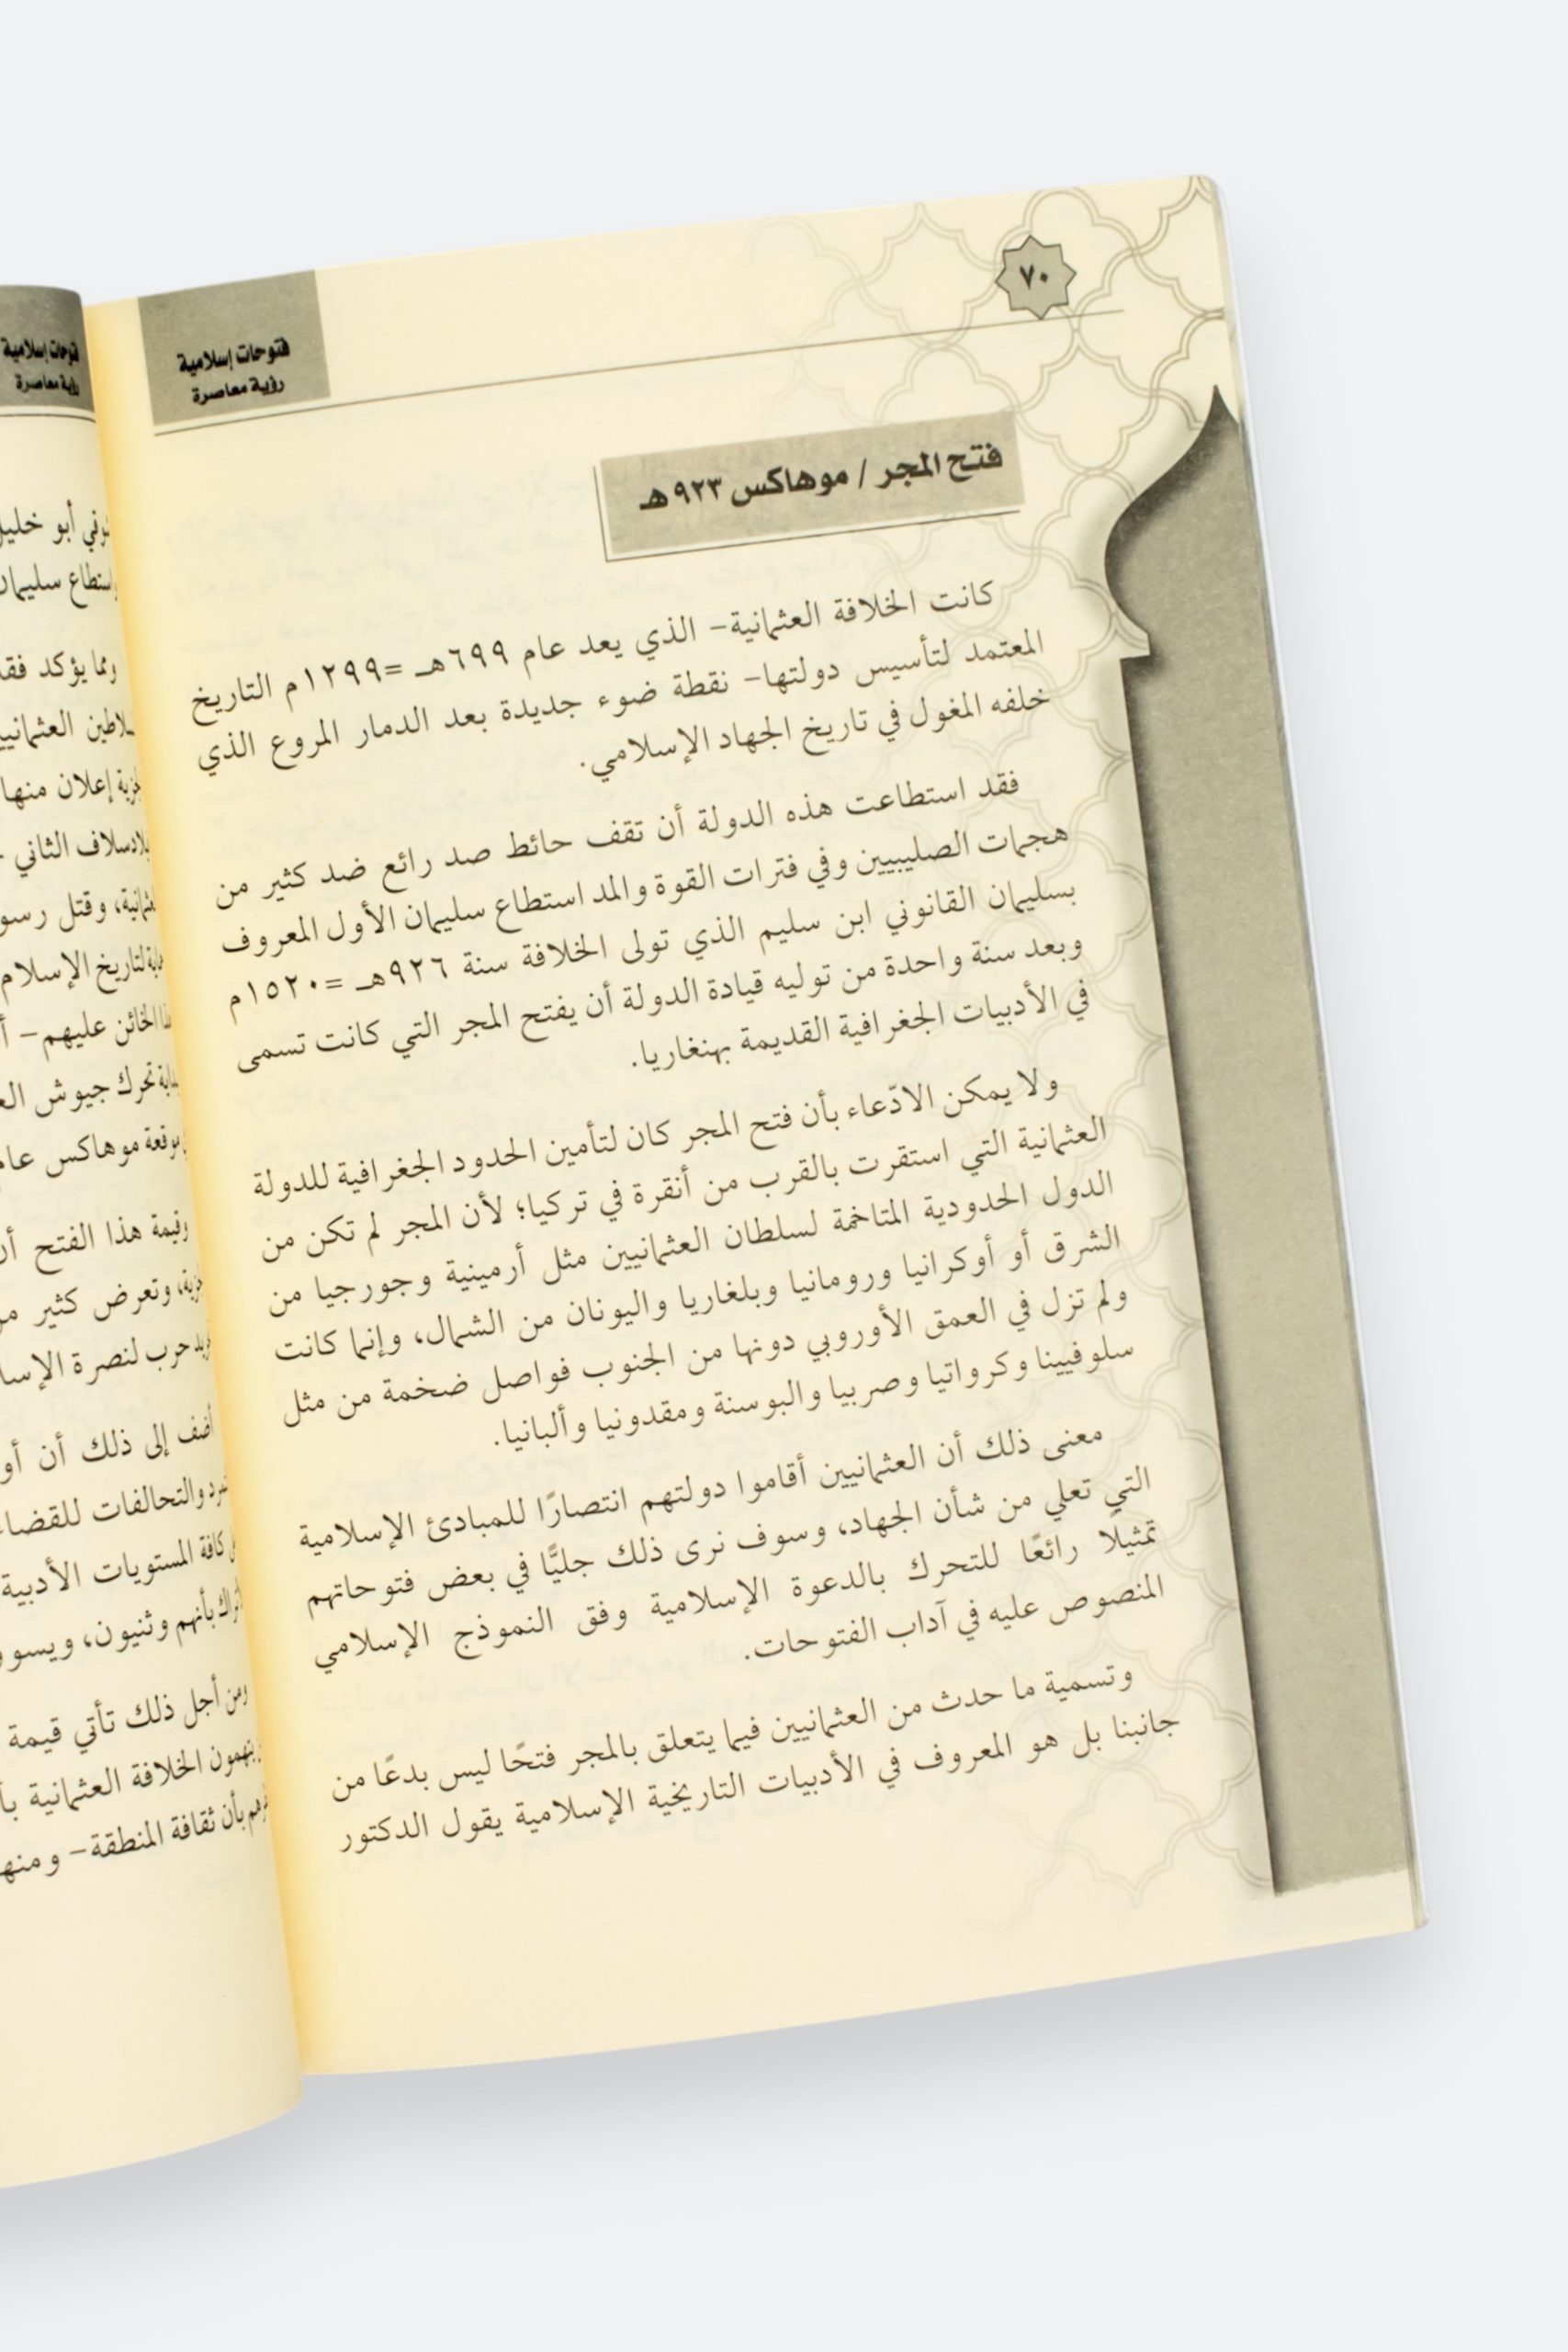 ٧٠
فتوحات إسلامية
رؤية معاصرة
فتح المجر / موهاكس ٩٢٣هـ
كانت الخلافة العثمانية- الذي يعد عام ٦٩٩هـ =١٢٩٩م التاريخ
المعتمد لتأسيس دولتها- نقطة ضوء جديدة بعد الدمار المروع الذي
خلفه المغول في تاريخ الجهاد الإسلامي.
فقد استطاعت هذه الدولة أن تقف حائط صد رائع ضد كثير من
هجمات الصليبيين وفي فترات القوة والمد استطاع سليمان الأول المعروف
بسليمان القانوني ابن سليم الذي تولى الخلافة سنة ٩٢٦هـ =١٥٢٠م
وبعد سنة واحدة من توليه قيادة الدولة أن يفتح المجر التي كانت تسمى
في الأدبيات الجغرافية القديمة بهنغاريا.
ولا يمكن الادّعاء بأن فتح المجر كان لتأمين الحدود الجغرافية للدولة
العثمانية التي استقرت بالقرب من أنقرة في تركيا؛ لأن المجر لم تكن من
الدول الحدودية المتاخمة لسلطان العثمانيين مثل أرمينية وجورجيا من
الشرق أو أوكرانيا ورومانيا وبلغاريا واليونان من الشمال، وإنما كانت
ولم تزل في العمق الأوروبي دونها من الجنوب فواصل ضخمة من مثل
سلوفيينا وكرواتيا وصربيا والبوسنة ومقدونيا وألبانيا.
معنى ذلك أن العثمانيين أقاموا دولتهم انتصارًا للمبادئ الإسلامية
التي تعلي من شأن الجهاد، وسوف نرى ذلك جليًّا في بعض فتوحاتهم
تمثيلًا رائعًا للتحرك بالدعوة الإسلامية وفق النموذج الإسلامي
المنصوص عليه في آداب الفتوحات.
وتسمية ما حدث من العثمانيين فيما يتعلق بالمجر فتحًا ليس بدعًا من
جانبنا بل هو المعروف في الأدبيات التاريخية الإسلامية يقول الدكتور
فتوحات إسلامية
رؤية معاصرة
أبو خليل
سليمان
ومما يؤكد
العثمانيين
إعلان منها
الثاني -
وقتل
لتاريخ الإسلام
الخائن عليهم-
تحرك جيوش
موهاكس عام
وقيمة هذا الفتح
وتعرض كثير
حرب لنصرة
أضف إلى ذلك أن
والتحالفات
كافة المستويات الأدبية
بأنهم وثنيون،
ومن أجل ذلك تأتي قيمة
الخلافة العثمانية
بأن ثقافة المنطقة-